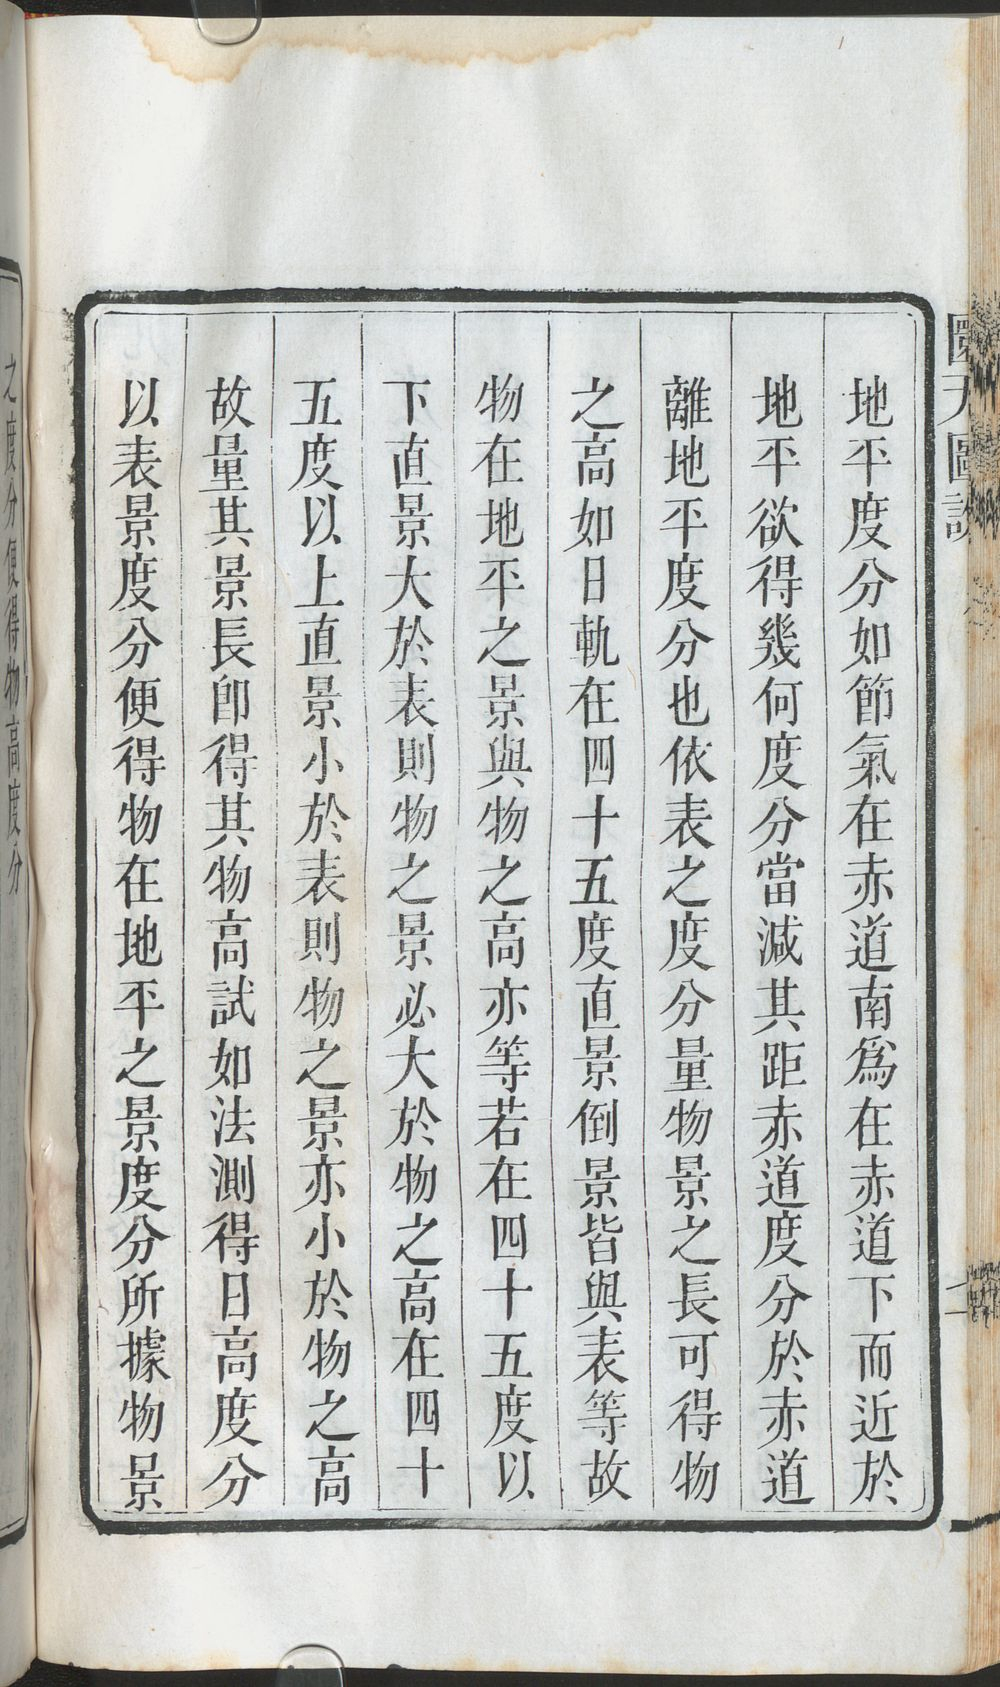 地平度分如節氣在赤道南爲在赤道下而近於
地平欲得幾何度分當減其距赤道度分於赤道
離地平度分也依表之度分量物景之長可得物
之高如日軌在四十五度直景倒景皆與表等故
物在地平之景與物之高亦等若在四十五度以
下直景大於表則物之景必大於物之高在四十
五度以上直景小於表則物之景亦小於物之高
故量其景長卽得其物高試如法測得日高度分
以表景度分便得物在地平之景度分所據物景
之度分便得物高度分